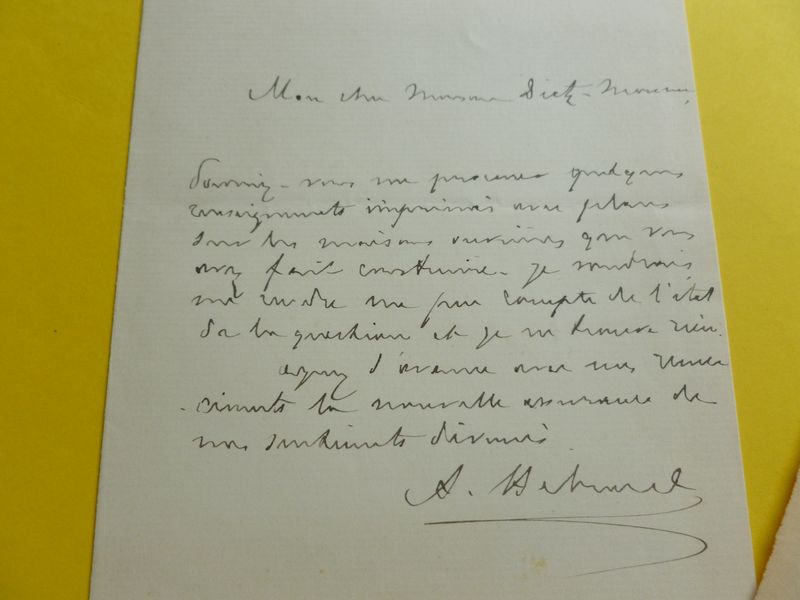 Mon cher Monsieur Dietz-Monnin,
Pourriez-vous me procurer quelques
renseignements imprimés avec plans
sur les maisons ouvrières que vous
avez fait construire. Je voudrais
me rendre un peu compte de l'état
de la question et je ne trouve rien.
Agréez d'avance avec mes remer
-ciments la nouvelle assurance de
mes sentiments dévoués
A. Hébrard